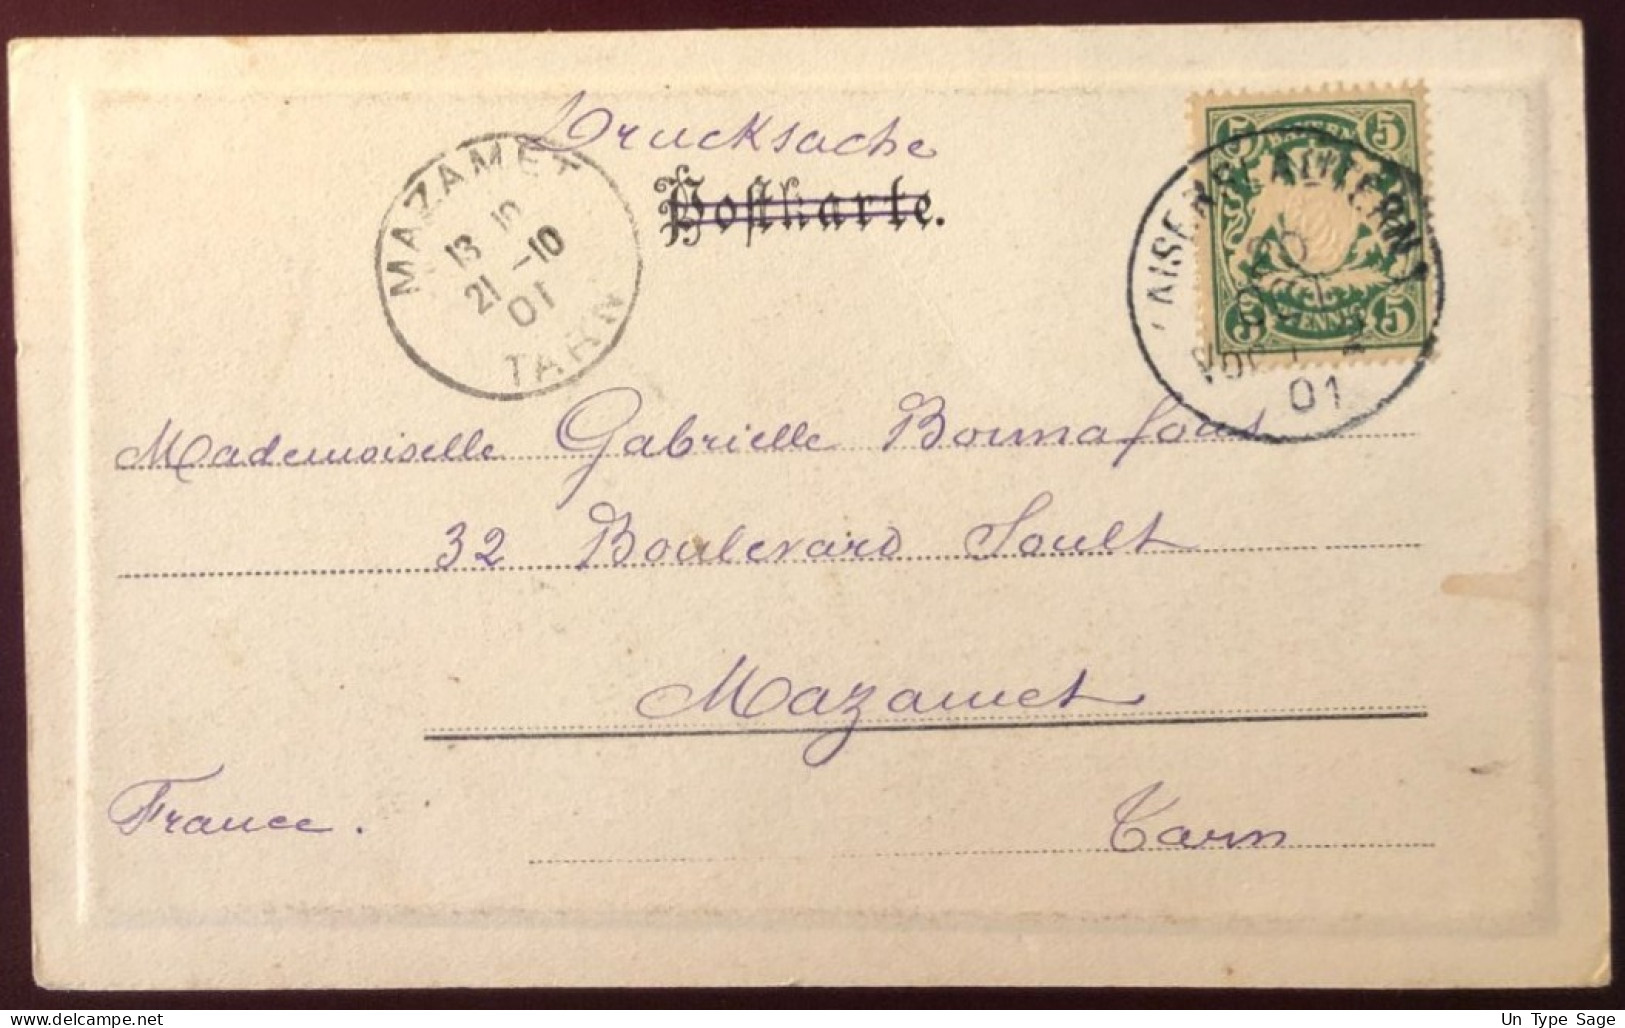 Drucksache
Postkarte.
MAZAMET
13
21 -10
01
TARN
5 BAYERN 5
5 PFENNIG 5
KAISERSLAUTERN 1
20
OCT
VOR
01
Mademoiselle Gabrielle Bonnafous
32 Boulevard Soult
Mazamet
France.
Tarn
Un Type Sage